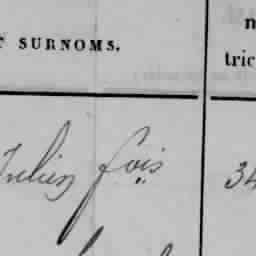 T SURNOMS.
n
tric
Julien fois
34